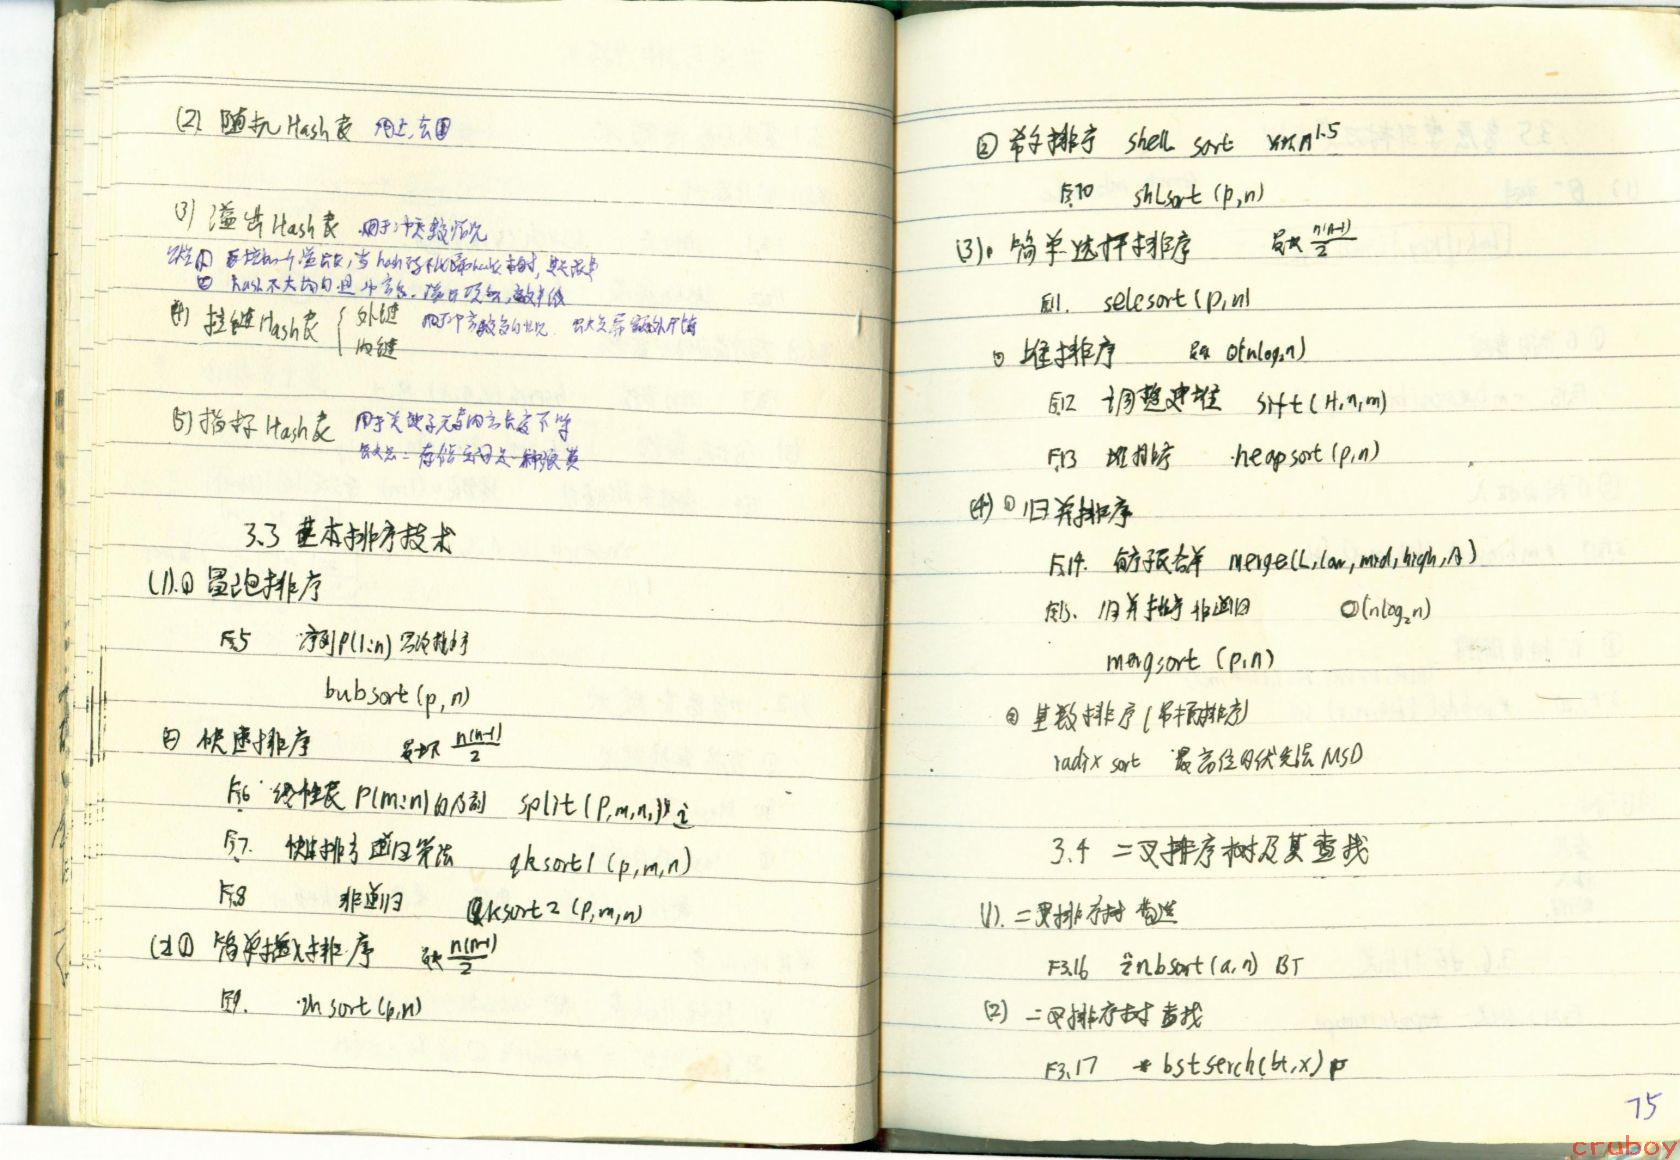 (2) 随机Hash表 用上,去图
(3) 溢出Hash表 用于冲突较少情况
(4) 拉链Hash表 { 外链 内链
(5) 指标Hash表 用于关键字元素内容长度不等
缺点: 存储空间是一种浪费
3.3 基本排序技术
(1).① 冒泡排序
F3.5 序列P(1:n)冒泡排序
bubsort(p,n)
② 快速排序 最坏 n(n-1)/2
F3.6 线性表P(m:n)的分割 split(P,m,n,) i
F3.7. 快速排序 递归算法 qksort1(p,m,n)
F3.8 非递归 qksort2(p,m,n)
(2)① 简单插入排序 最坏 n(n-1)/2
F3.9. insort(p,n)
② 希尔排序 shell sort n^1.5
F3.10 shlsort(p,n)
(3)① 简单选择排序 最坏 n(n-1)/2
F3.11. selesort(p,n)
② 堆排序 最坏 O(nlog₂n)
F3.12 调整建堆 sift(H,n,m)
F3.13 堆排序 heapsort(p,n)
(4) ① 归并排序
F3.14. 有序子表合并 merge(L,low,mid,high,A)
F3.15. 归并排序 非递归 O(nlog₂n)
mergsort (p,n)
② 基数排序(吊桶排序)
radix sort 最高位优先法 MSD
3.4 二叉排序树及其查找
(1). 二叉排序树 构造
F3.16 inbsort(a,n) BT
(2) 二叉排序树 查找
F3.17 * bstserch(bt,x) p
75
cruboy